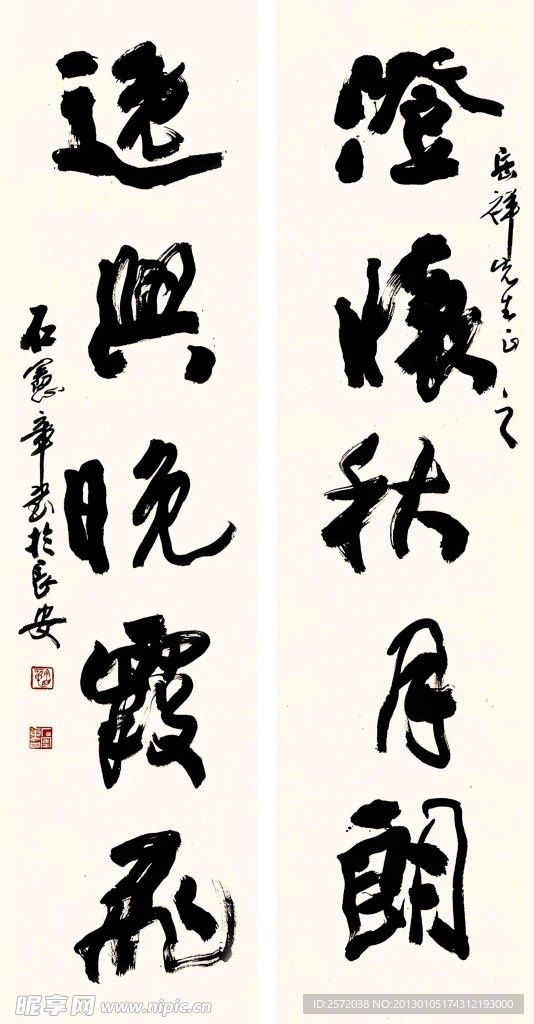 澄怀秋月朗
岳祥先生正之
逸兴晚霞飛
石宪章书於长安
昵享网 www.nipic.cn
ID:2572038 NO:20130105174312193000